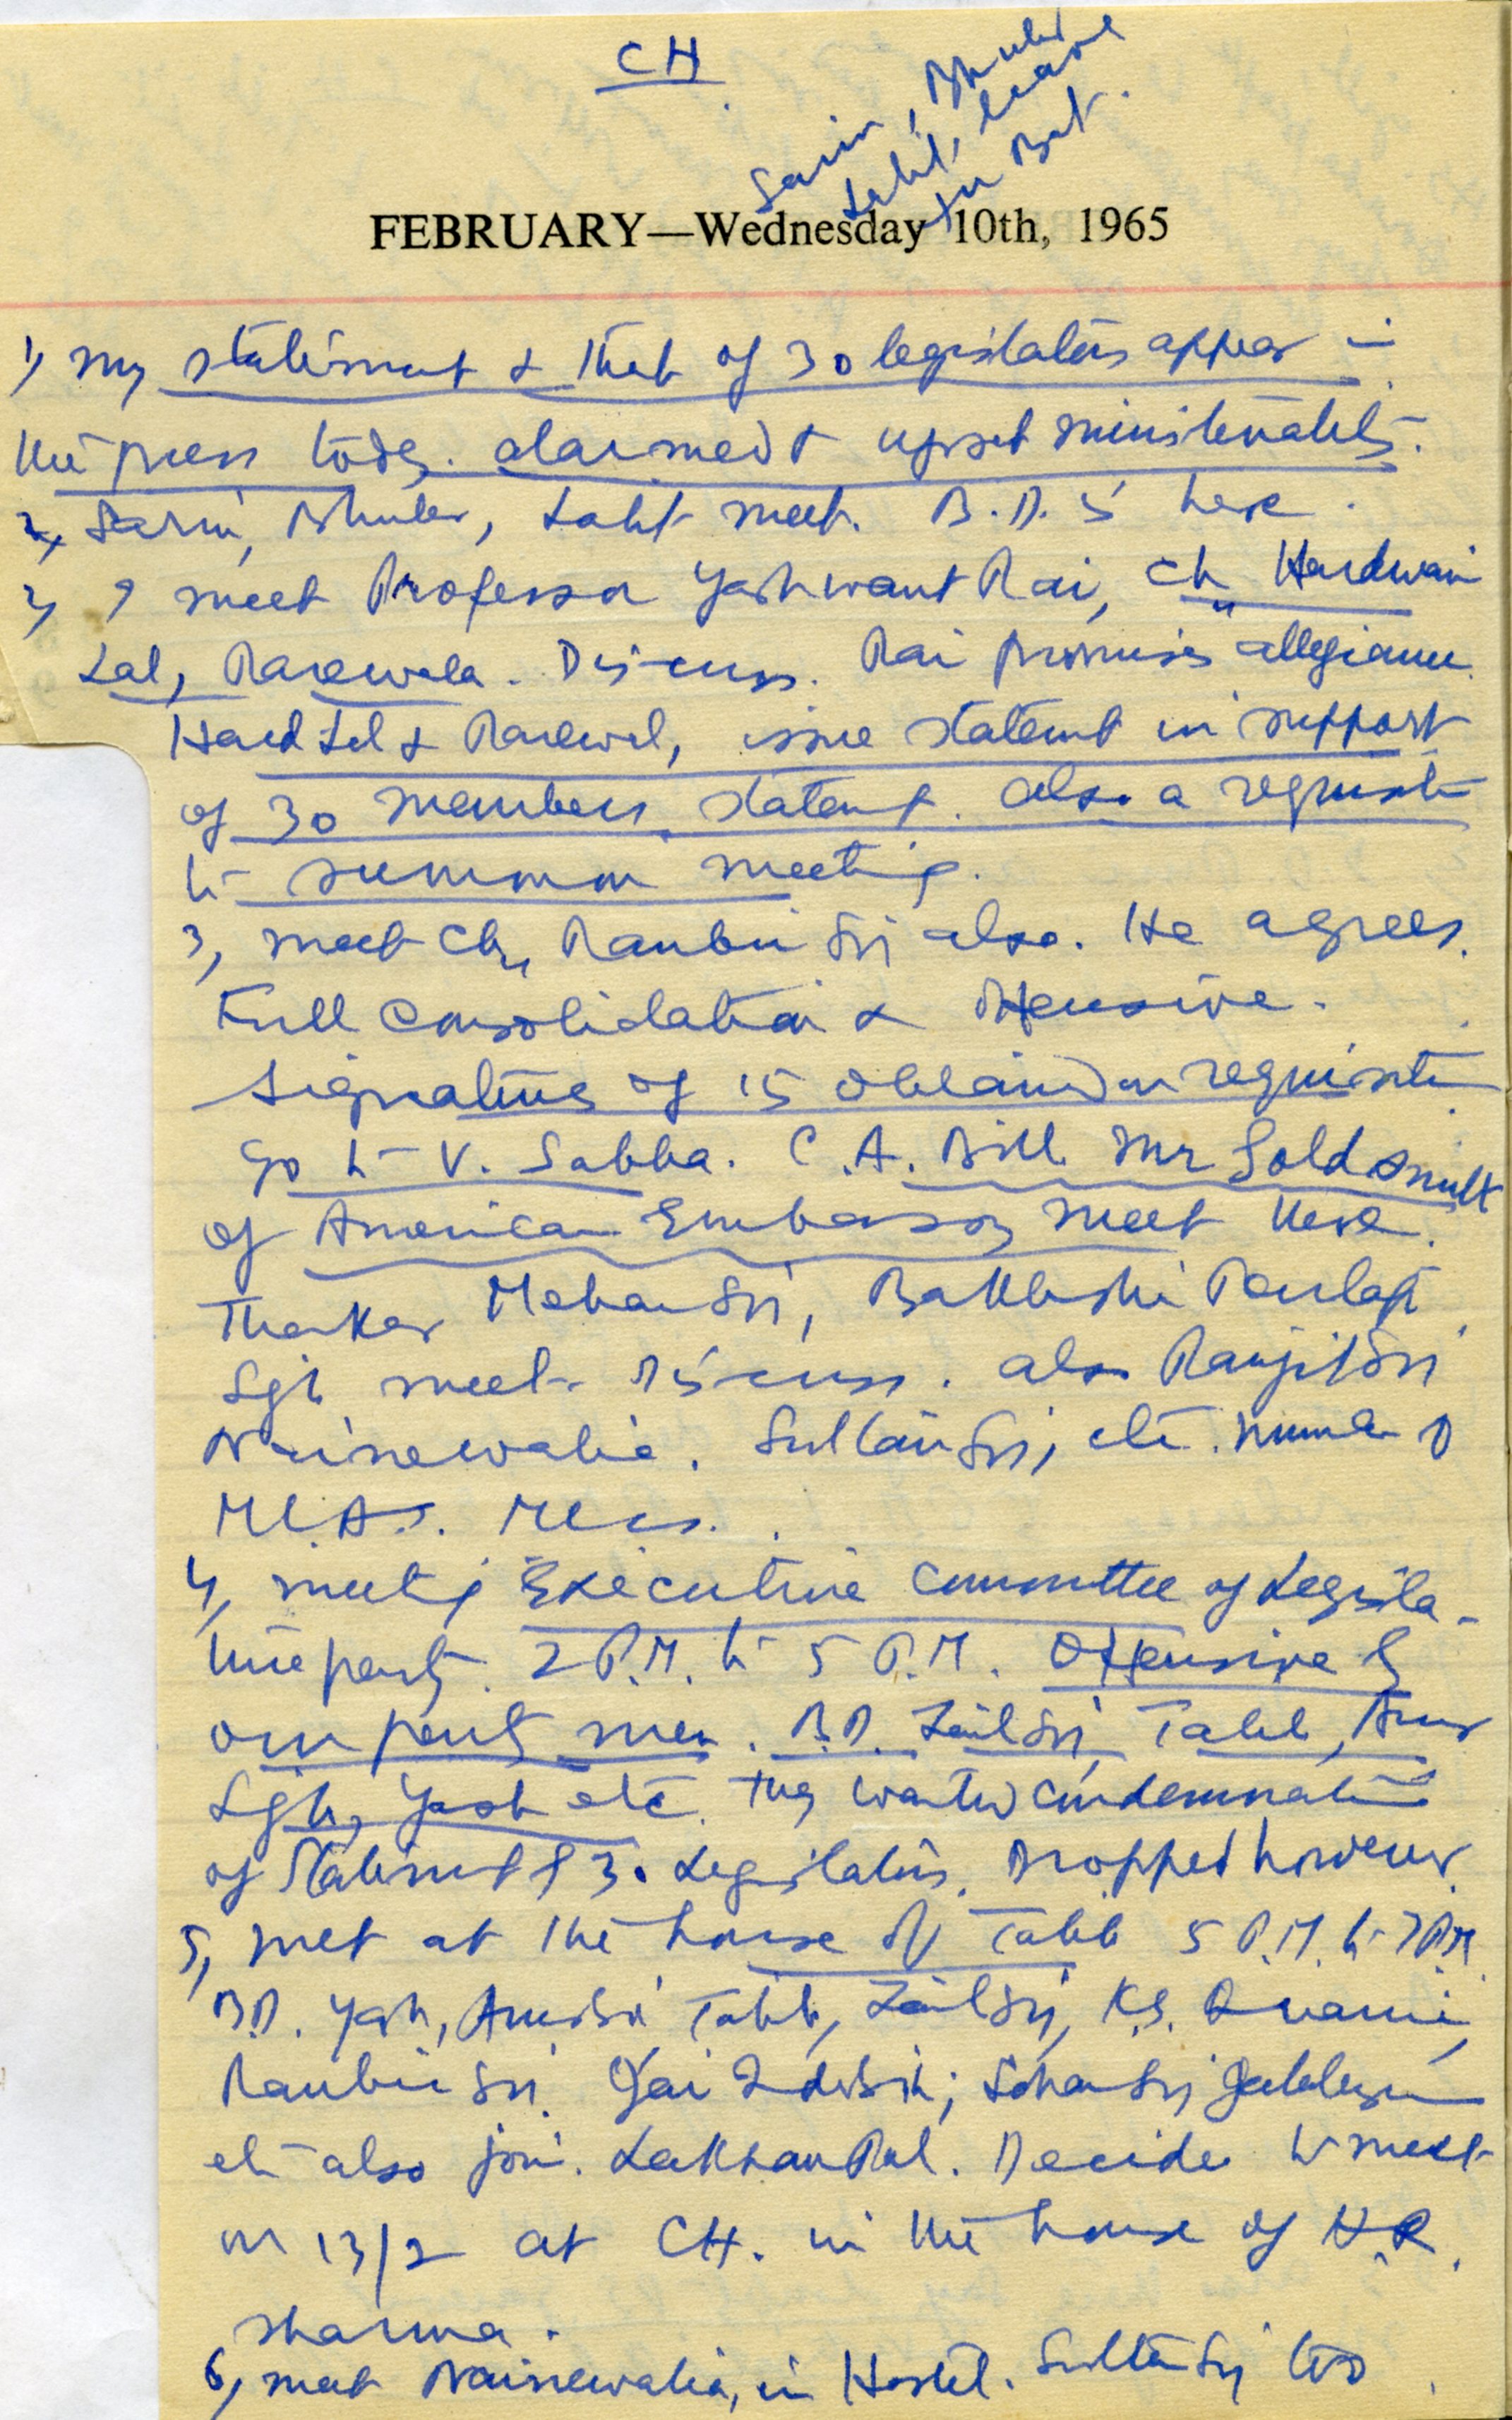 CH
Sarin, Bhuler
Lahit, leave
for Bat.
FEBRUARY—Wednesday 10th, 1965
1, my statement & that of 30 legislators appear in
the press today. alarmed & upset ministerialists.
2, Sarin, Bhuler, Lahit meet. B.D. is here.
3, I meet Professor Yashwant Rai, Ch, Hardwari
Lal, Rarewala. Discuss. Rai promises allegiance.
Hard Lal & Rarewal, issue statemt in support
of 30 members statemt. also a requisition
to summon meeting.
3, meet Ch, Ranbir Sn also. He agrees.
Full consolidation & offensive.
Signatures of 15 obtained on requisition
go to V. Sabha. C.A. Bill. Mr Goldsmith
of American Embassy meet here.
Thaker Mehar Sn, Bakhshi Partap
Sgh meet. Discuss. also Ranjit Sn
Nainewalia. Sultan Sn, etc. number of
MLAs. MLCs.
4, meeting Executive Committee of Legisla-
ture party. 2 P.M. to 5 P.M. Offensive by
our party men. B.D. Zail Sn, Talib, Amar
Sgh, Yash etc. they wanted condemnation
of Statement of 30 Legislators. Dropped however.
5, met at the house of Talib 5 P.M. to 7 P.M.
B.D. Yash, Amar Sn Talib, Zail Sn, K.S.
Ranbir Sn. Jai Inder Sn; Sohan Sn
etc also join. Lakhan Pal. Decide to meet
on 13/2 at CH. in the house of H.R.
Sharma.
6, meet Nainewalia, in Hostel. Sultan Sn too.